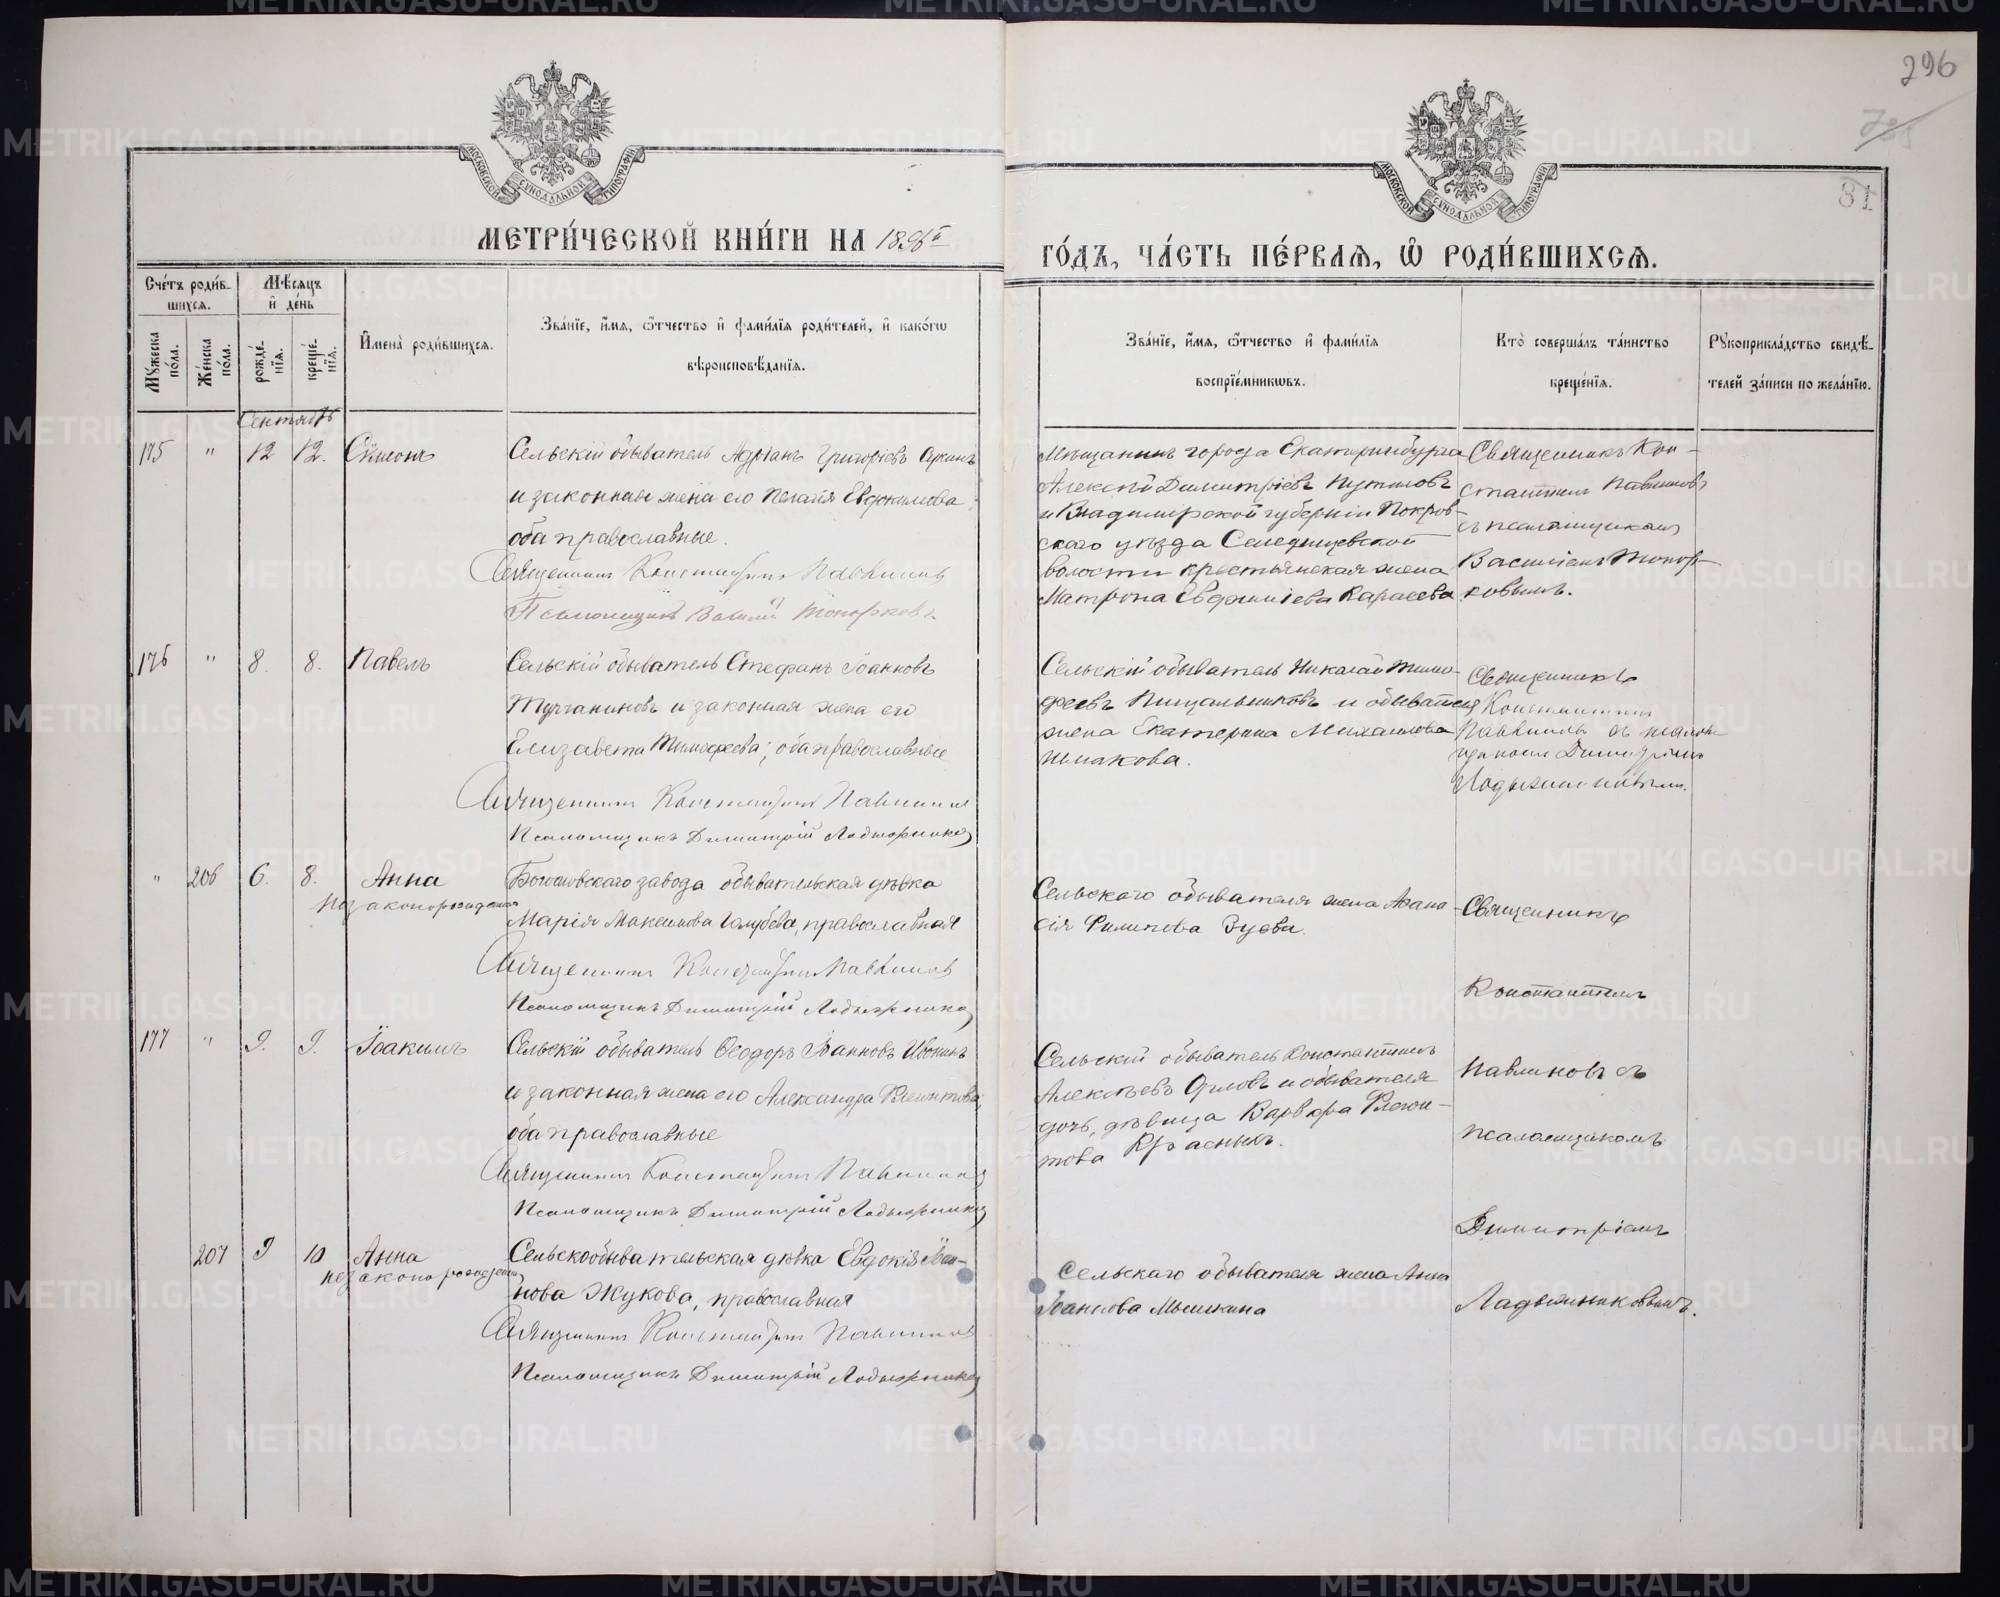 296
МОСКОВСКОЙ СѴНОДАЛЬНОЙ ТИПОГРАФІИ
МОСКОВСКОЙ СѴНОДАЛЬНОЙ ТИПОГРАФІИ
81
МЕТРИ́ЧЕСКОЙ КНИ́ГИ НА 1896й
ГО́ДЪ, ЧА́СТЬ ПЕ́РВАѦ, Ѡ҆ РОДИ́ВШИХСѦ.
Сче́тъ роди́в-
шихсѧ.
Мѣ́сѧцъ
и҆ де́нь
Мꙋ́жеска по́ла.
Же́нска по́ла.
рожде́-
нїѧ.
креще́-
нїѧ.
И҆мена̀ роди́вшихсѧ.
Зва́нїе, и҆́мѧ, ѻ҆́тчество и҆ фами́лїѧ роди́телей, и҆ како́гѡ
вѣроисповѣ́данїѧ.
Зва́нїе, и҆́мѧ, ѻ҆́тчество и҆ фами́лїѧ
воспрїе́мникѡвъ.
Кто̀ соверша́лъ та́инство
креще́нїѧ.
Рꙋкоприкла́дство свидѣ́-
телей за́писи по жела́нїю.
Сентябрь
175 " 12 12. Сѵмеонъ
Сельскій обыватель Адріанъ Григоріевъ
и законная жена его Пелагія Евфимова
оба православные.
Священникъ Константинъ Павлиновъ
Псаломщикъ Василій Топорковъ.
Мѣщанинъ города Екатеринбурга
Алексѣй Димитріевъ Путиловъ
и Владимирской губерніи Покров-
скаго уѣзда
волости крестьянская жена
Матрона Евфиміева Карасева
Священникъ Кон-
стантинъ Павлиновъ
съ псаломщикомъ
Василіемъ Топор-
ковымъ.
176 " 8. 8. Павелъ
Сельскій обыватель Стефанъ Іоанновъ
Турчаниновъ и законная жена его
Елизавета Тимофеева; оба православные
Священникъ Константинъ Павлиновъ
Псаломщикъ Димитрій Ладыжниковъ
Сельскій обыватель Николай Тимо-
феевъ Пищальниковъ и обывателя
жена Екатерина Михайлова
Священникъ
Константинъ
Павлиновъ съ псалом-
щикомъ Димитріемъ
Ладыжниковымъ.
" 206 6. 8. Анна
незаконорожденная
Богословскаго завода обывательская дѣвка
Марія Максимова Голубева, православная
Священникъ Константинъ Павлиновъ
Псаломщикъ Димитрій Ладыжниковъ
Сельскаго обывателя жена Афана-
сія Филипова Зуева.
Священникъ
Константинъ
Павлиновъ съ
псаломщикомъ
Димитріемъ
Ладыжниковымъ.
177 " 9. 9. Іоакимъ
Сельскій обыватель Ѳеодоръ Іоанновъ Ивонинъ
и законная жена его Александра Флегонтова,
оба православные
Священникъ Константинъ Павлиновъ
Псаломщикъ Димитрій Ладыжниковъ
Сельскій обыватель Константинъ
Алексѣевъ Орловъ и обывателя
дочь, дѣвица Варвара Флегон-
това Красныхъ.
207 9 10 Анна
незаконорожденная
Сельскообывательская дѣвка Евдокія Іоан-
нова Жукова, православная
Священникъ Константинъ Павлиновъ
Псаломщикъ Димитрій Ладыжниковъ
Сельскаго обывателя жена Анна
Іоаннова Мышкина
METRIKI.GASO-URAL.RU